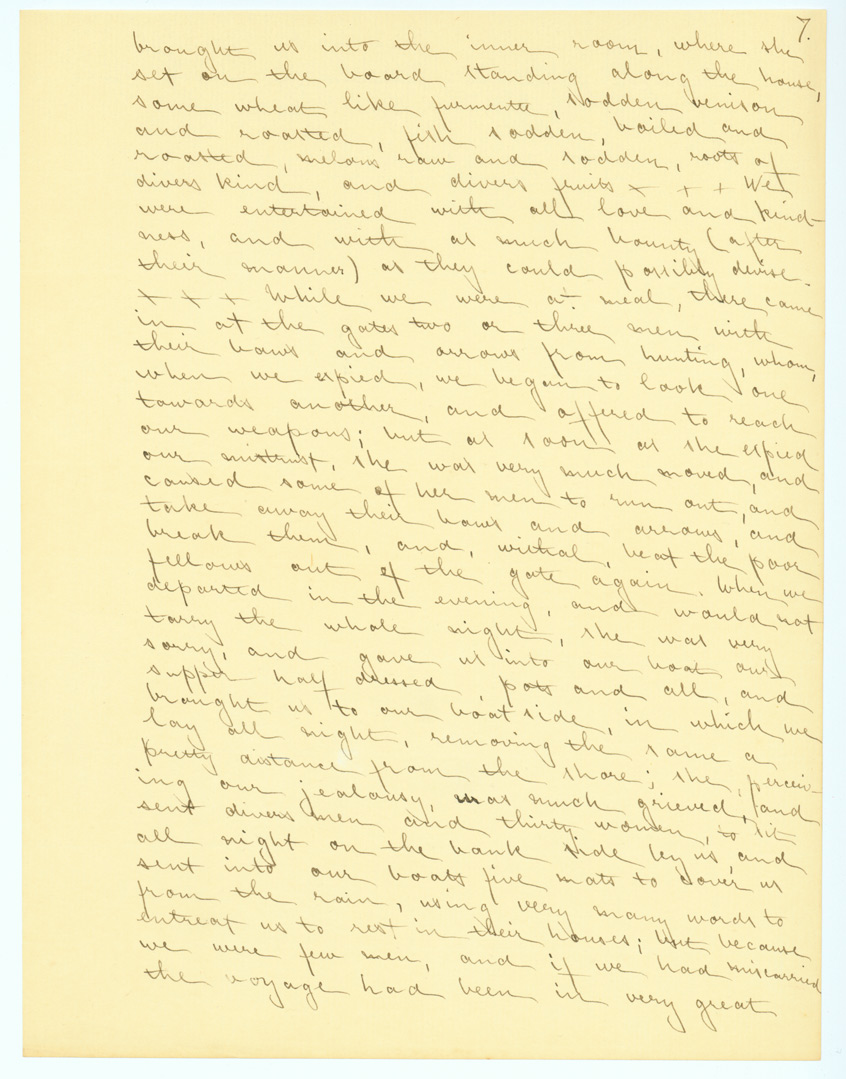 7.
brought us into the inner room, where she
set on the board standing along the house,
some wheat like furmentee, sodden venison
and roasted, fish sodden, boiled and
roasted, melons raw and sodden, roots of
divers kind, and divers fruits x + + We
were entertained with all love and kind-
ness, and with as much bounty (after
their manner) as they could possibly devise.
x x x While we were at meal, there came
in at the gates two or three men with
their bows and arrows from hunting, whom,
when we espied, we began to look one
towards another, and offered to reach
our weapons; but as soon as she espied
our mistrust, she was very much moved, and
caused some of her men to run out, and
take away their bows and arrows, and
break them, and, withal, beat the poor
fellows out of the gate again. When we
departed in the evening, and would not
tarry the whole night, she was very
sorry, and gave us into our boat our
supper half dressed, pots and all, and
brought us to our boat side, in which we
lay all night, removing the same a
pretty distance from the shore; she, perceiv-
ing our jealousy, was much grieved, and
sent divers men and thirty women, to sit
all night on the bank side by us, and
sent into our boats five mats to cover us
from the rain, using very many words to
entreat us to rest in their houses; but because
we were few men, and if we had miscarried
the voyage had been in very great